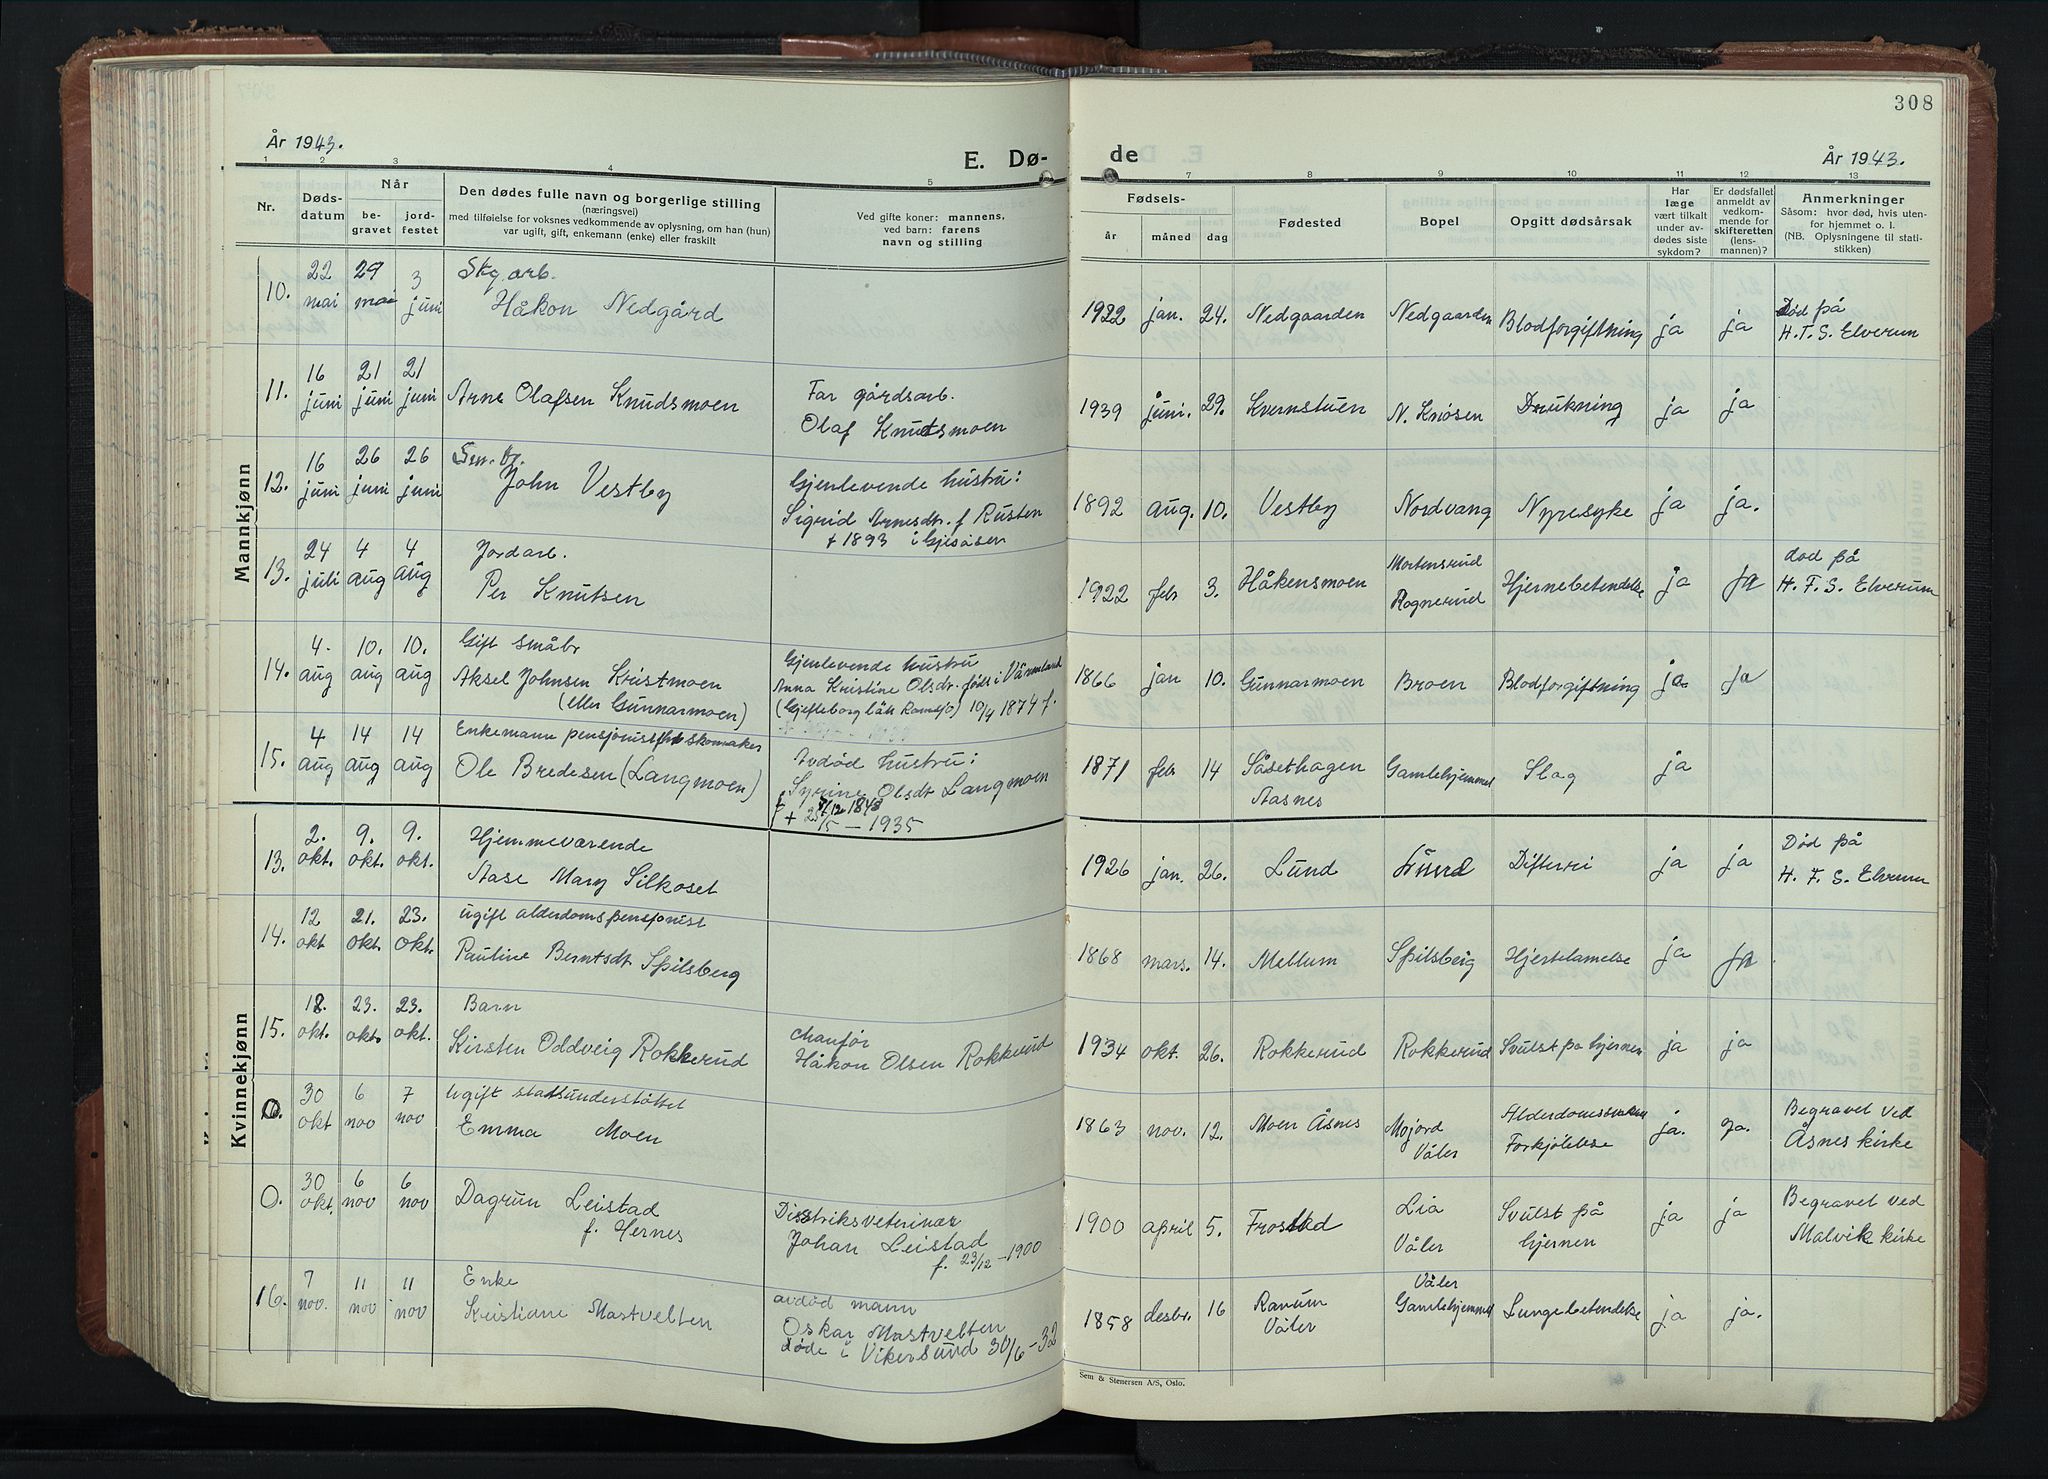 308
År 1943.
E. Dø-
de
År 1943.
1 2 3 4 5 7 8 9 10 11 12 13
Nr.
Døds-
datum
Når
be-
gravet
jord-
festet
Den dødes fulle navn og borgerlige stilling
(næringsvei)
med tilføielse for voksnes vedkommende av oplysning, om han (hun)
var ugift, gift, enkemann (enke) eller fraskilt
Ved gifte koner: mannens,
ved barn: farens
navn og stilling
Fødsels-
år måned dag
Fødested
Bopel
Opgitt dødsårsak
Har
læge
vært tilkalt
under av-
dødes siste
sykdom?
Er dødsfallet
anmeldt av
vedkom-
mende for
skifteretten
(lens-
mannen)?
Anmerkninger
Såsom: hvor død, hvis uten-
for hjemmet o. l.
(NB. Oplysningene til stati-
stikken)
Mannkjønn
10. 22 mai 29 mai 3 juni
Skg. arb.
Håkon Nedgård
1922 jan. 24. Nedgaarden Nedgaarden Blodforgiftning ja ja
Død på
H.F.S. Elverum
11. 16 juni 21 juni 21 juni
Arne Olafsen Knudsmoen
Far gårdsarb.
Olaf Knudsmoen
1939 juni. 29. Kvernstuen N. Knösen Drukning ja ja
12. 16 juni 26 juni 26 juni
Sm. br.
John Vestby
Gjenlevende hustru:
Sigrid Arnesdtr. f Rusten
+ 1893 i Gjesåsen
1892 aug. 10. Vestby Nordvang Nyresyke ja ja.
13. 24 juli 4 aug 4 aug
Jordarb.
Per Knutsen
1922 feb 3. Håkensmoen
Mortensrud
Rognerud
Hjernebetendelse ja ja
død på
H. F. S. Elverum
14. 4. aug 10. aug 10. aug
Gift småbr
Aksel Johnsen Kristmoen
(eller Gunnarmoen)
Gjenlevende hustru
Anna Kristine Olsdr. født i Värmland
10/4 1874 f.
1866 jan 10. Gunnarmoen Broen Blodforgiftning ja. ja
15. 4 aug 14 aug 14 aug
Enkemann pensjonist fht skomaker
Ole Bredesen (Langmoen)
Avdød hustru:
Syrine Olsdt Langmoen
15 – 1935
1871 feb 14
Såsethagen
Aasnes
Gamlehjemmet Slag ja
Kvinnekjønn
13. 2. okt. 9. okt. 9. okt.
Hjemmeværende
Aase Mary Silkoset
1926 jan. 26. Lund Lund Difteri ja ja
Død på
H. F. S. Elverum
14. 12 okt 21. okt. 23. okt.
ugift alderdomspensjonist
Pauline Berntsdt Spilsberg
1868 mars. 14. Mellum Spilsberg Hjertelamelse ja ja
15. 18. okt. 23. okt. 23. okt.
Barn
Kirsten Oddveig Rokkerud
chauför
Håkon Olsen Rokkerud
1934 okt. 26. Rokkerud Rokkerud Svulst på hjernen ja ja
0. 30 okt 6 nov 7 nov
Ugift statsunderstöttet
Emma Moen
1863 nov. 12. Moen Åsnes
Mojord
Våler
Forkjölelse
ja. ja.
Begravet ved
Åsnes kirke
0. 30 okt. 6 nov 6 nov
Dagrun Leistad
f. Hernes
Distriksveterinær
Johan Leistad
f. 23/12 – 1900
1900 april 5. Frostad
Lia
Våler
Svulst på
hjernen
ja ja
Begravet ved
Malvik kirke
16. 7 nov. 11 nov 11 nov
Enke
Kristiane Mastvelten
avdød mann
Oskar Mastvelten
døde i Vikersund 30/6 – 32
1858 desbr. 16
Ranum
Våler
Våler
Gamlehjemmet
Lungebetendelse ja ja.
Sem & Stenersen A/S, Oslo.